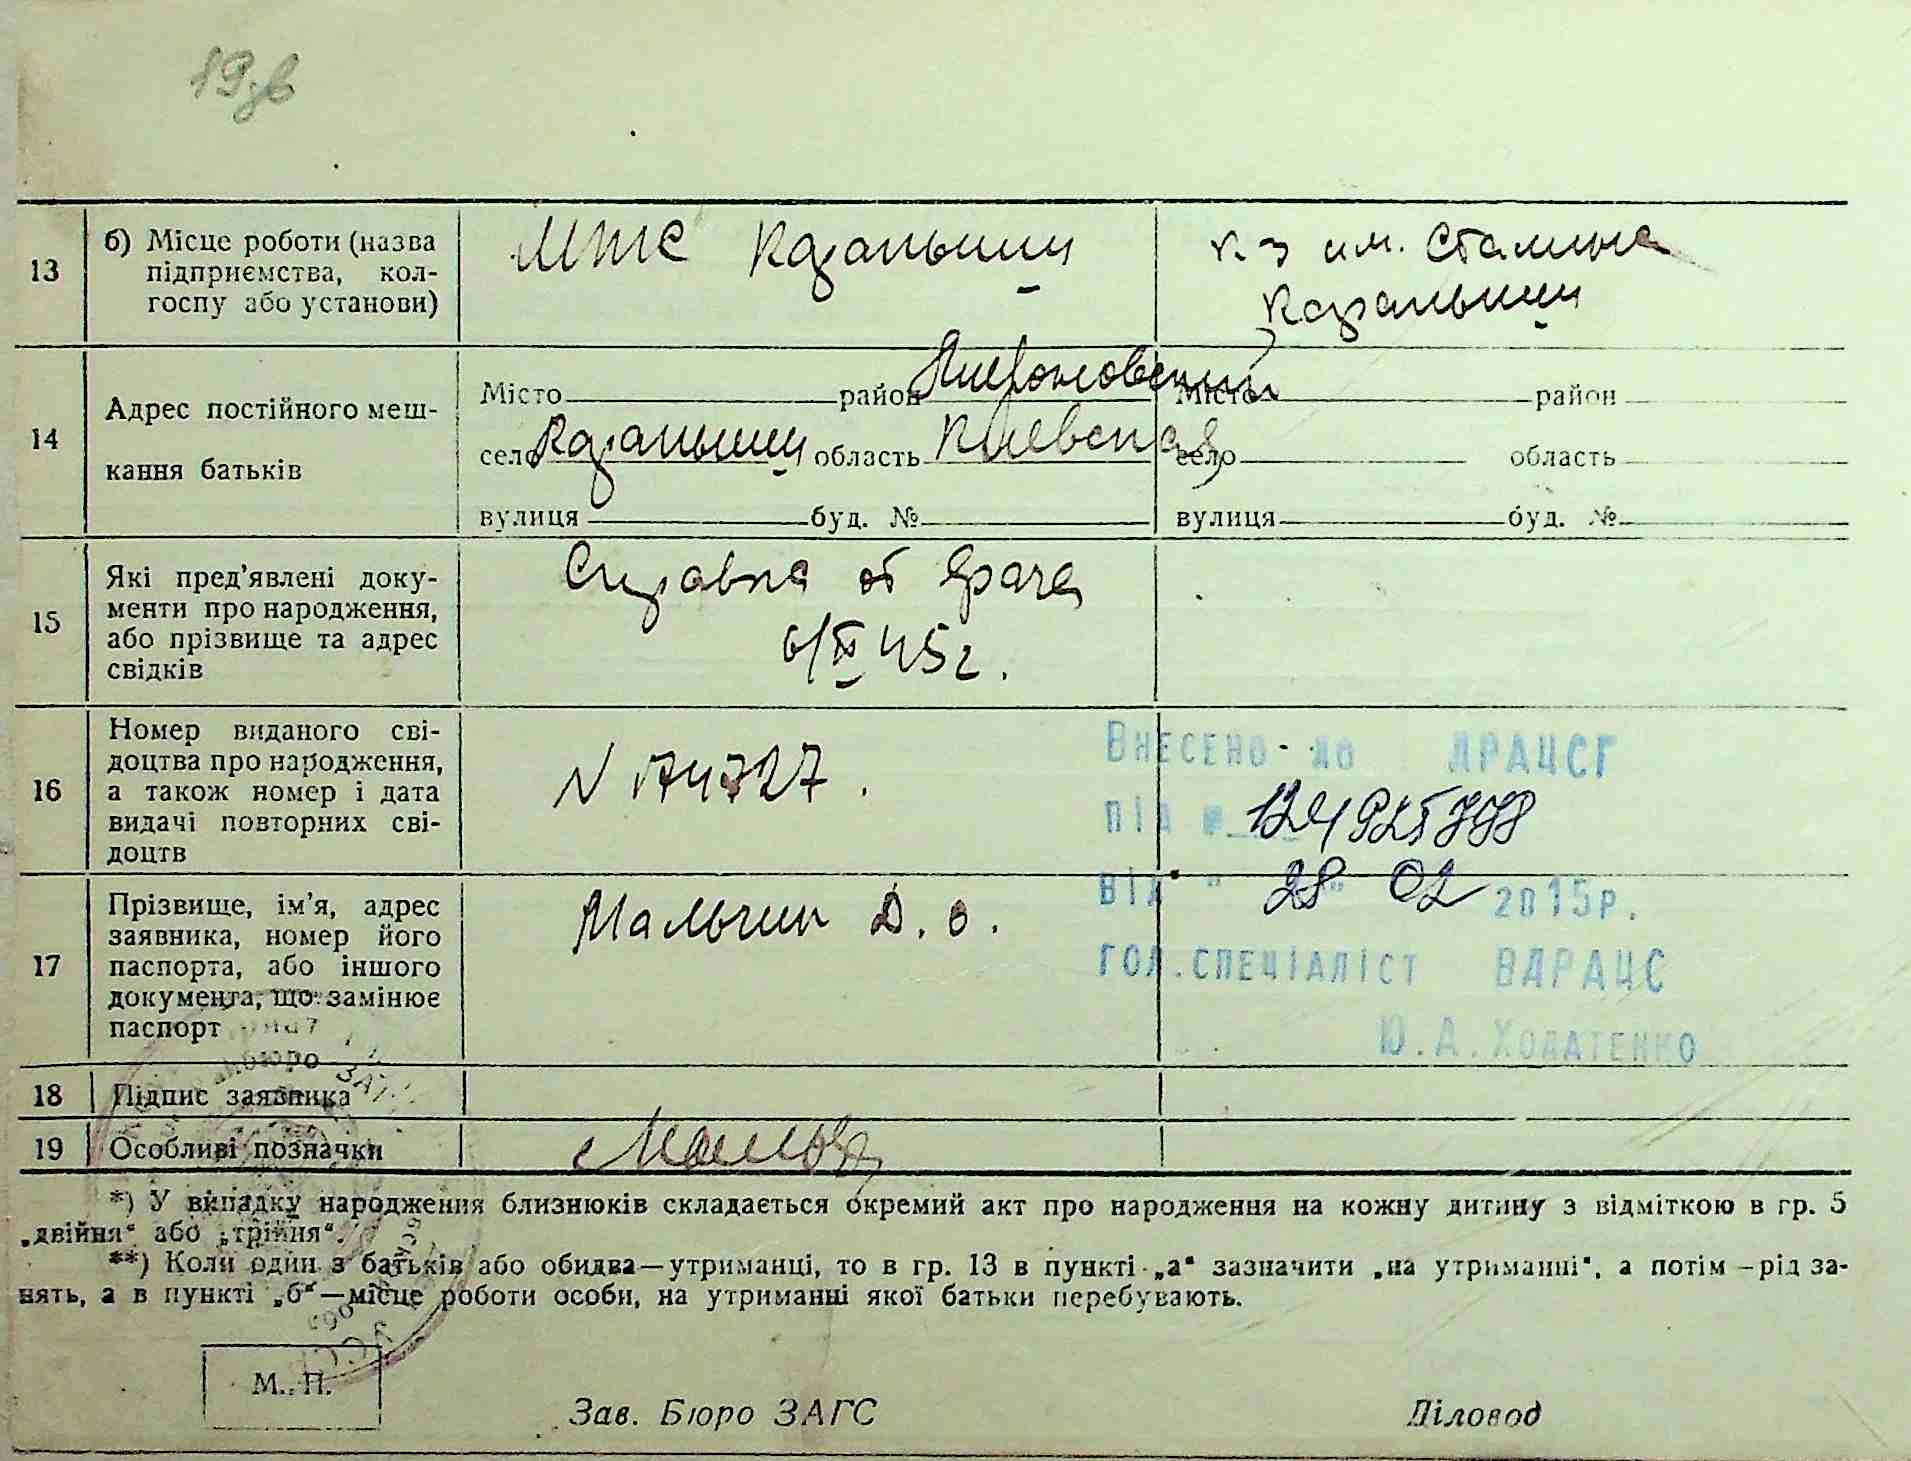 19зв
13
б) Місце роботи (назва
підприємства, кол-
госпу або установи)
МТС Козаньыщ
к-з им. Сталина
Козаньыщ
14
Адрес постійного меш-
кання батьків
Місто район Мироновский
село Козаньыщ область Киевская
вулиця буд. №
Місто район
село область
вулиця буд. №
15
Які пред'явлені доку-
менти про народження,
або прізвище та адрес
свідків
Справка от врача
45 г.
16
Номер виданого сві-
доцтва про народження,
а також номер і дата
видачі повторних сві-
доцтв
N 174727.
Внесено до ДРАЦСГ
під № 124925778
від " 28 " 02 2015р.
гол.спеціаліст ВДРАЦС
Ю.А.Ходатенко
17
Прізвище, ім'я, адрес
заявника, номер його
паспорта, або іншого
документа, що замінює
паспорт
Мальчик Д. О.
18
Підпис заявника
19
Особливі позначки
*) У випадку народження близнюків складається окремий акт про народження на кожну дитину з відміткою в гр. 5
„двійня“ або „трійня“.
**) Коли один з батьків або обидва—утриманці, то в гр. 13 в пункті „а“ зазначити „на утриманні“, а потім —рід за-
нять, а в пункті „б“—місце роботи особи, на утриманні якої батьки перебувають.
М. П.
Зав. Бюро ЗАГС
Діловод